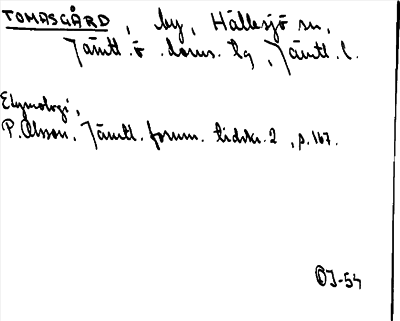 TOMASGÅRD, by, Hällesjö sn,
Jämtl. ö. doms. lg, Jämtl. l.
Etymologi,
P. Olsson, Jämtl. fornm. tidskr. 2, p. 167.
OJ-54